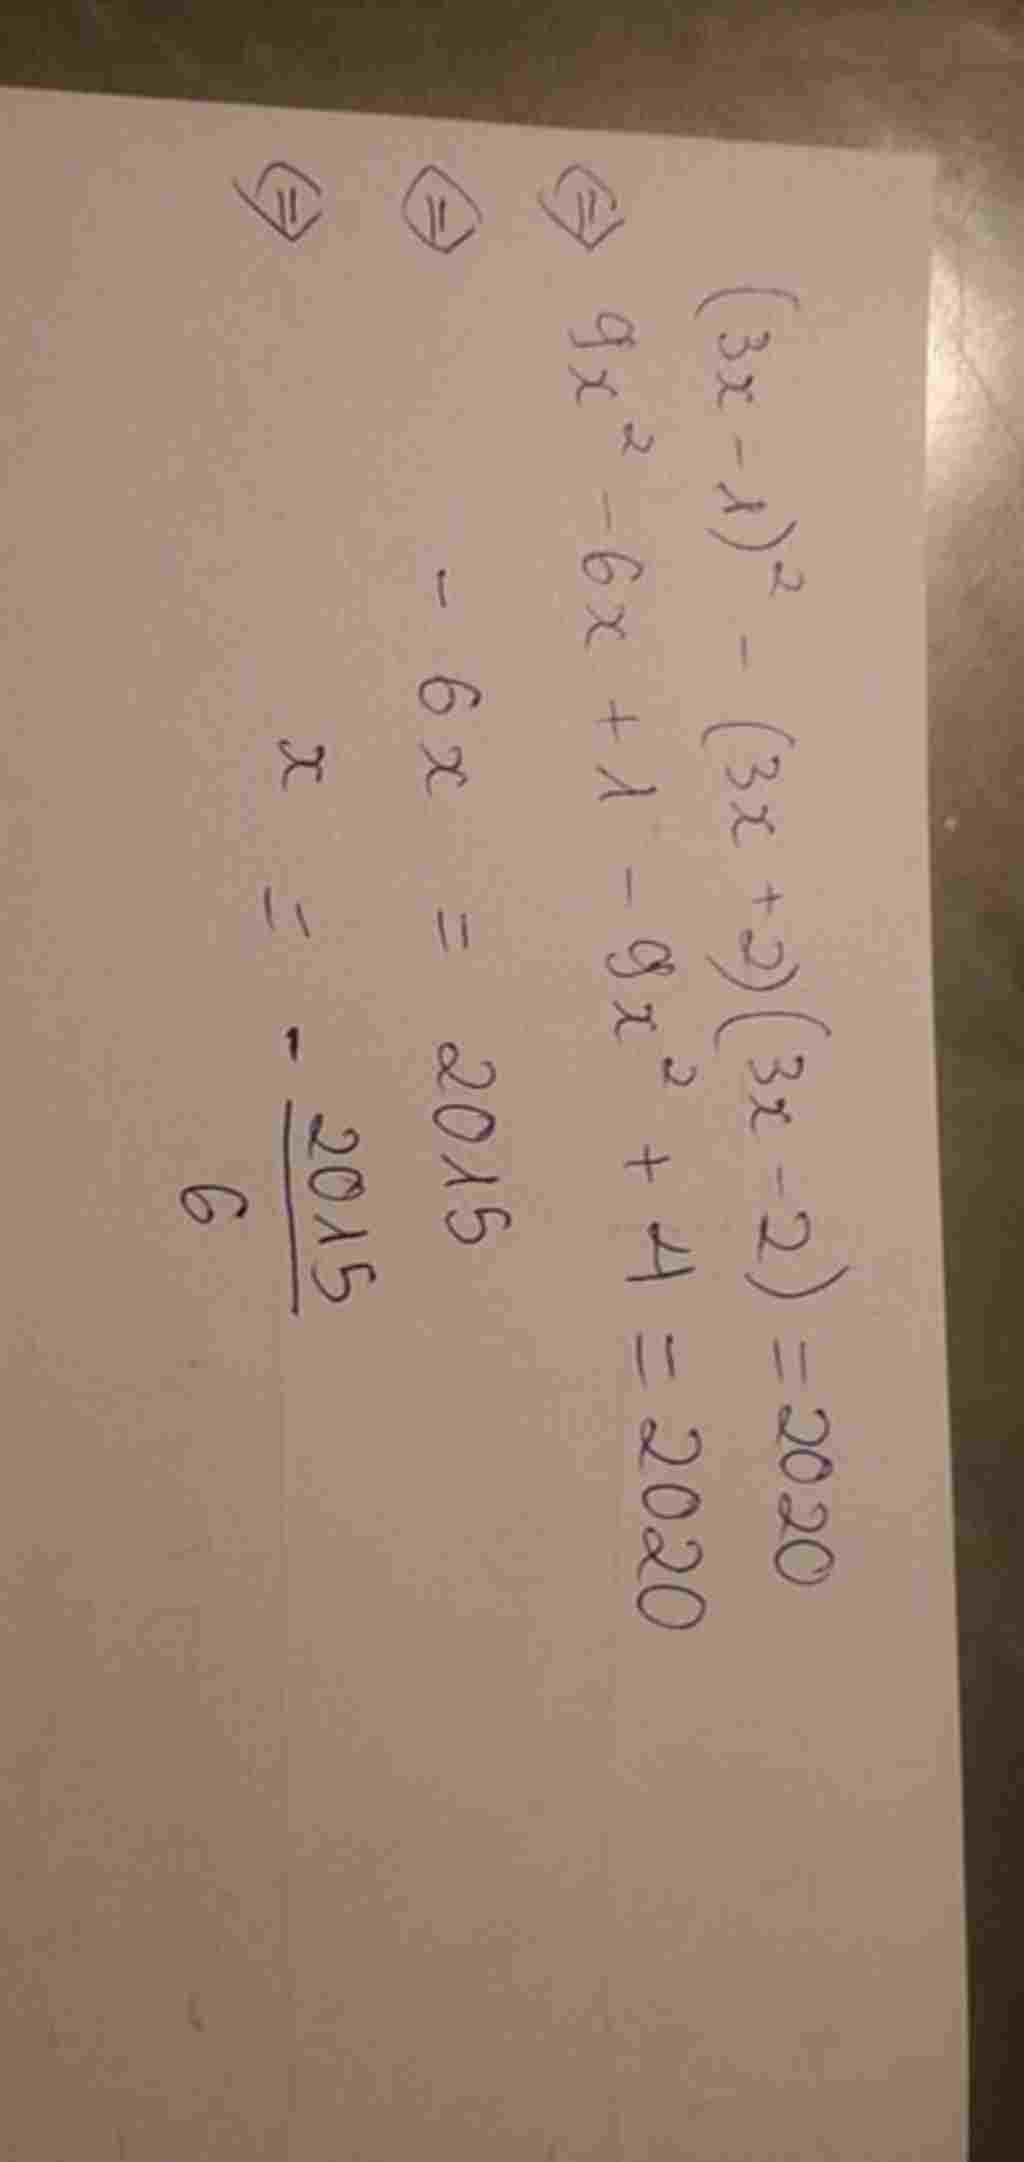 (3x - 1)² - (3x + 2)(3x - 2) = 2020
⇔ 9x² - 6x + 1 - 9x² + 4 = 2020
⇔ - 6x = 2015
⇔ x = - 2015/6